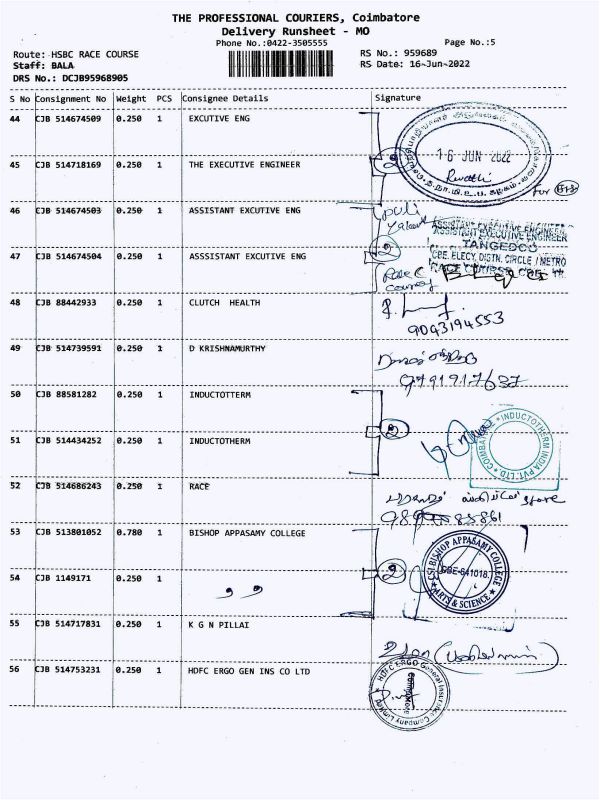 THE PROFESSIONAL COURIERS, Coimbatore
Delivery Runsheet - MO
Phone No.:0422-3505555 Page No.:5
Route: HSBC RACE COURSE RS No.: 959689
Staff: BALA RS Date: 16-Jun-2022
DRS No.: DCJB95968905
S No Consignment No Weight PCS Consignee Details Signature
44 CJB 514674509 0.250 1 EXCUTIVE ENG
16 JUN 2022
45 CJB 514718169 0.250 1 THE EXECUTIVE ENGINEER 2
for
46 CJB 514674503 0.250 1 ASSISTANT EXCUTIVE ENG
ASSISTANT EXECUTIVE ENGINEER
TANGEDCO
47 CJB 514674504 0.250 1 ASSSISTANT EXCUTIVE ENG 2 CBE. ELECY. DISTN. CIRCLE / METRO
Race Course
48 CJB 88442933 0.250 1 CLUTCH HEALTH
9043194553
49 CJB 514739591 0.250 1 D KRISHNAMURTHY
9791917637
50 CJB 88581282 0.250 1 INDUCTOTTERM
2 INDUCTOTHERM INDIA PVT. LTD. COIMBATORE
51 CJB 514434252 0.250 1 INDUCTOTHERM
52 CJB 514686243 0.250 1 RACE
store
53 CJB 513801052 0.780 1 BISHOP APPASAMY COLLEGE
CSI BISHOP APPASAMY COLLEGE
54 CJB 1149171 0.250 1 ,, 2 CBE-641018.
ARTS & SCIENCE
55 CJB 514717831 0.250 1 K G N PILLAI
56 CJB 514753231 0.250 1 HDFC ERGO GEN INS CO LTD HDFC ERGO General Insurance Company Limited
Coimbatore